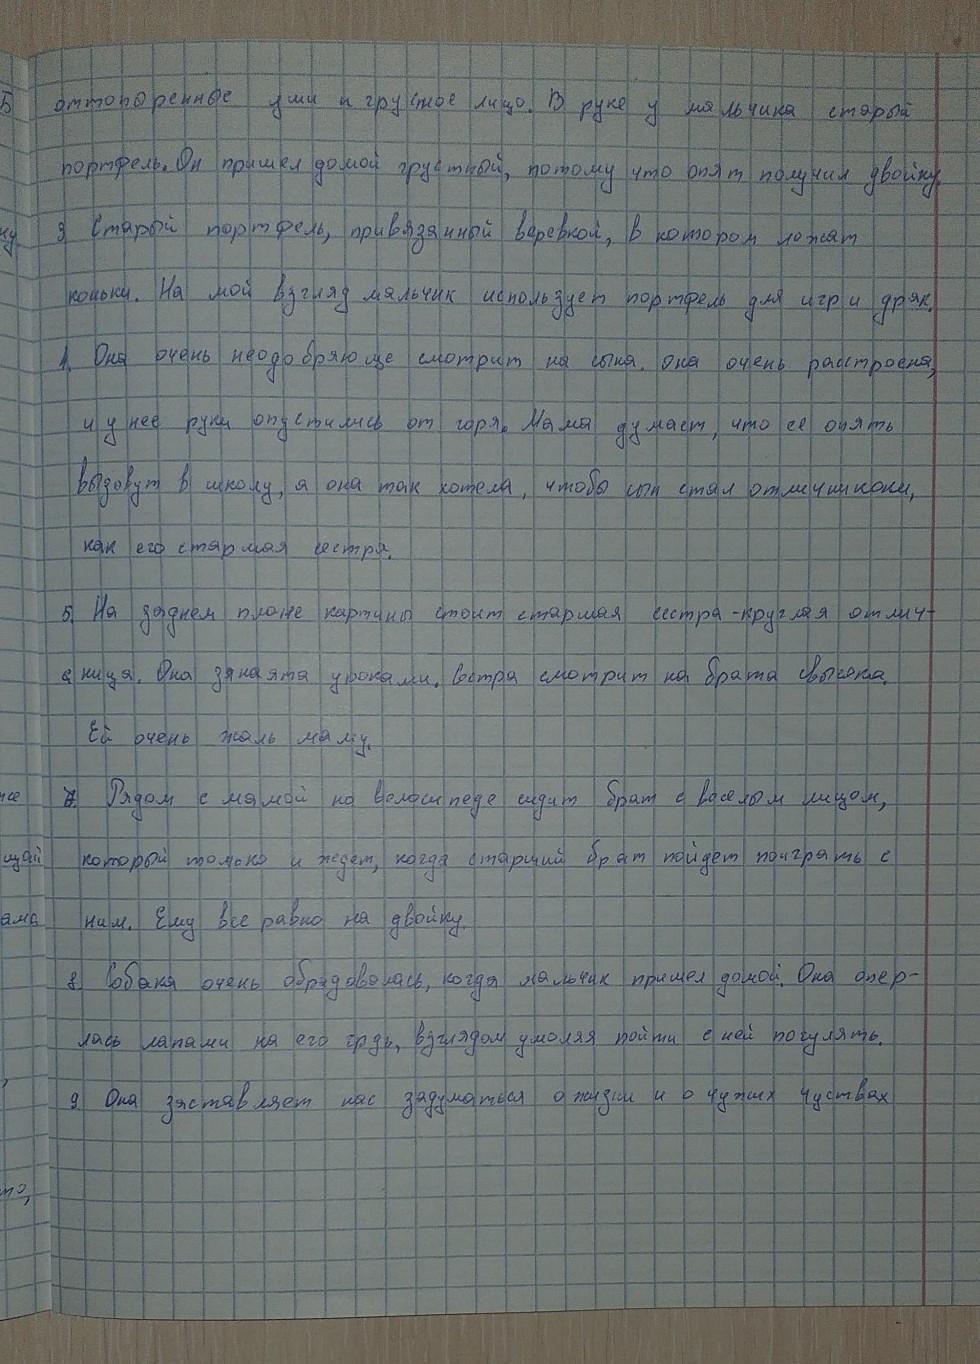 Б оттопоренные уши и грустное лицо. В руке у мальчика старый
портфель. Он пришел домой грустный, потому что опят получил двойку.
ну 3 Старый портфель, привязанный веревкой, в котором лежат
коньки. На мой взгляд мальчик использует портфель для игр и дряк.
4. Она очень неодобряюще смотрит на сына. Она очень расстроена,
и у нее руки опустились от горя. Мама думает, что ее опять
вызовут в школу, а она так хотела, чтобы сын стал отличником,
как его старшая сестра.
5. На заднем плане картины стоит старшая сестра - круглая отлич-
ница. Она занята уроками. Сестра смотрит на брата свысока.
Ей очень жаль маму.
7. Рядом с мамой на велосипеде сидит брат с веселым лицом,
щай который только и ждет, когда старший брат пойдет поиграть с
ама ним. Ему все равно на двойку.
8. Собака очень обрадовалась, когда мальчик пришел домой. Она опер-
лась лапами на его грудь, взглядом умоляя пойти с ней погулять.
9 Она заставляет нас задуматься о жизни и о чужих чуствах